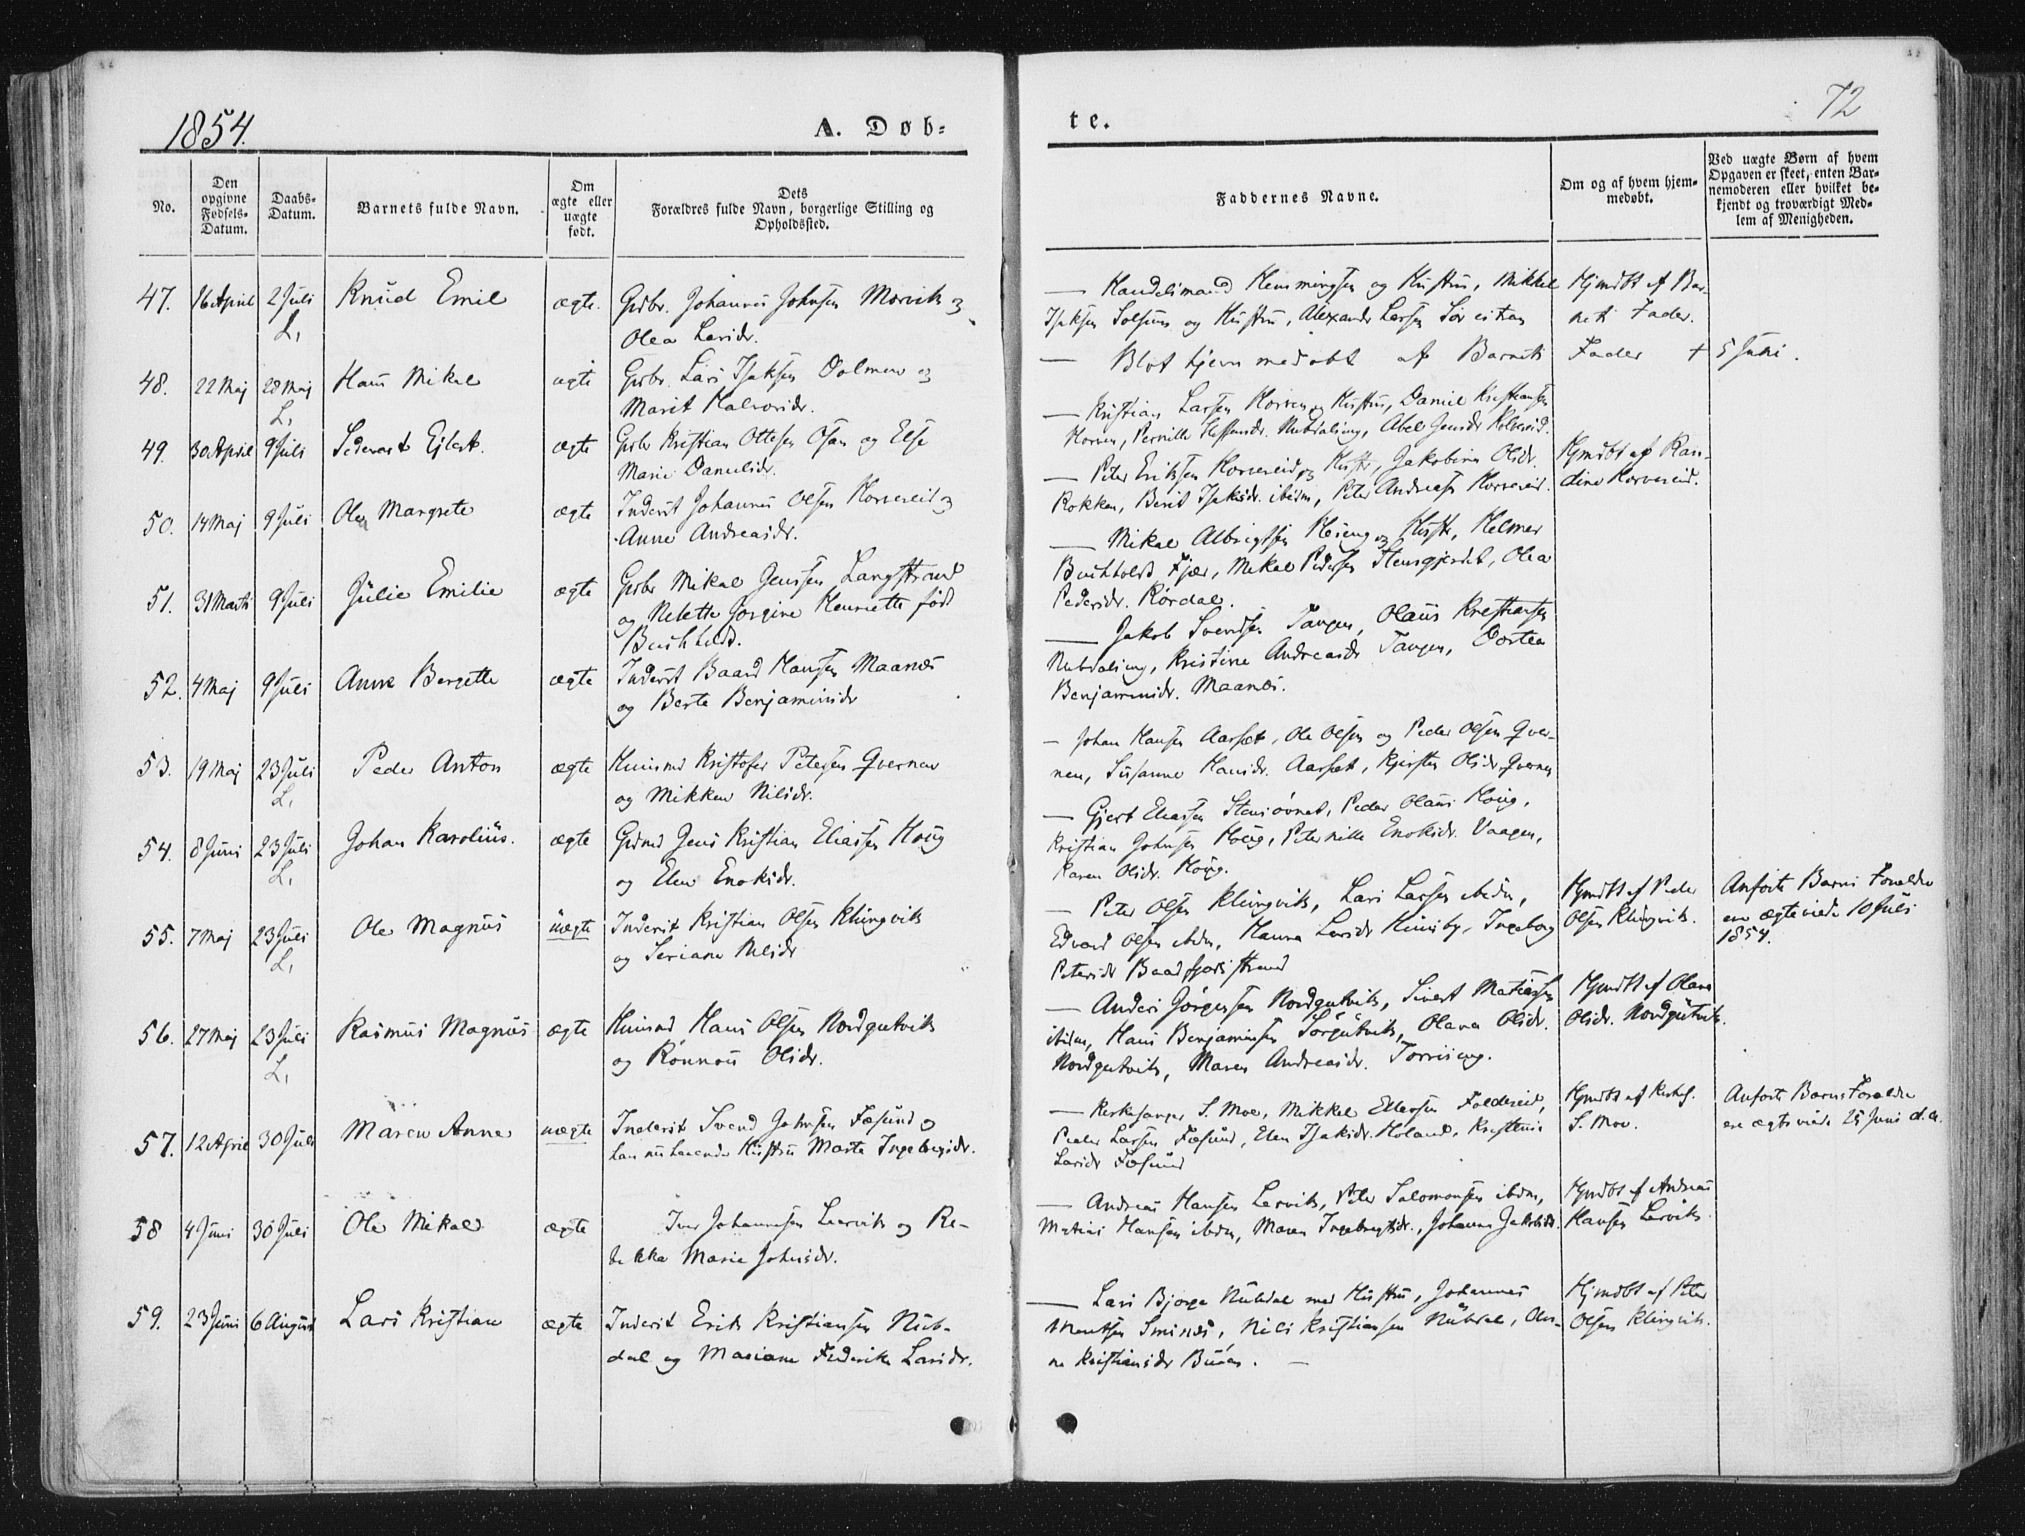 1854.
A. Døb-
te.
72
No.
Den opgivne Fødsels-Datum.
Daabs-Datum.
Barnets fulde Navn.
Om ægte eller uægte født.
Dets Forældres fulde Navn, borgerlige Stilling og Opholdssted.
Faddernes Navne.
Om og af hvem hjem-medøbt.
Ved uægte Børn af hvem Opgaven er skeet, enten Bar-nemoderen eller hvilket be-kjendt og troværdigt Med-lem af Menigheden.
47. 16 April 2 Juli Knud Emil ægte. Grdbr. Johannes Johnsen Morvik og
L,
Olea Larsdr.
— Handelsmand Hemmingsen og Hustru, Mikkel
Isaksen Solsum og Hustru, Alexander Larsen
Hjmdbt af Bar-
nets Fader.
48. 22 Maj 28 Maj Hans Mikal ægte Grdbr. Lars Isaksen Dolmen og
L,
Marit Halvorsdr.
— Blot hjemmedøbt af Barnets Fader + 5 Juni.
49. 30 April 9 Juli Sivert Ejlert. ægte Grdbr Kristian Ottesen Osan og Else
Marie Danielsdr.
— Kristian Larsen Horven og Hustru, Daniel Kristiansen
Horven, Pernille Nubdaling, Abel Jensdr
50. 14 Maj 9 Juli Olea Margrete ægte Inderst Johannes Olsen Horvereid og
Anne Andreasdr.
— Peter Eriksen Horvereid og Hustr, Jakobine Olsdr.
Rokken, Berit Isaksdr. ibidm, Peter Andreasen Horvereid.
Hjmdbt af Ran-
dine Horvereid.
51. 31 Marts 9 Juli Julie Emilie ægte Grdbr Mikal Jenssen Langstrand
og Nelette Jorgine Henriette født
Buchholdt.
— Mikal Albrigtsen Høieng og Hustr, Helmer
Buchholdt Fjær, Mikal Pedersen Stensgjerdet, Olea
Pedersdr. Rørdal.
52. 4 Maj 9 Juli Anne Bergette ægte Inderst Baard Hansen Maanes
og Berte Benjaminsdr
— Jakob Svendsen Tangen, Olaus Kristiansen
Nubdaling, Kristine Andreasdr Tangen, Dortea
Benjaminsdr. Maanes.
53. 19 Maj 23 Juli Peder Anton ægte Husmd Kristofer Petersen Qvernen
L,
og Mikken Nilsdr.
— Johan Hansen Aarset, Ole Olsen og Peder Olsen Qver-
nen, Susanne Hansdr. Aarset, Kjersten Olsdr. Qvernen
54. 8 Juni 23 Juli Johan Karolius. ægte Grdmd Jens Kristian Eliassen Houg
L,
og Elen Enoksdr.
— Gjert Eliassen Stensøvnet, Peder Olaus Houg,
Kristian Johnsen Houg, Peternille Enoksdr. Vaagen,
Karen Olsdr. Houg.
55. 7 Maj 23 Juli Ole Magnus uægte Inderst Kristian Olsen Klingvik
L,
og Seriane Nilsdr
— Peter Olsen Klingvik, Lars Larsen ibidm,
Edvard Olsen ibdm, Hanna Larsdr Ingeborg
Petersdr Baadfjordstrand
Hjmdbt af Peder
Olsen Klingvik.
Anførte Barns Forældre
ere ægteviede 10 Juli
1854.
56. 27 Maj 23 Juli Rasmus Magnus ægte Husmd Hans Olsen Nordgutvik
L,
og Rønnou Olsdr.
— Anders Jørgensen Nordgutvik, Sivert Matiassen
ibidm, Hans Benjaminsen Sørgutvik, Olava Olsdr.
Nordgutvik, Maren Andreasdr. Torriseng.
Hjmdbt af Olava
Olsdr. Nordgutvik.
57. 12 April 30 Juli Maren Anna uægte Inderst Svend Johnsen Fæsund og
hans nuhavende Hustru Marta Ingebrigtsdr.
— Kirkesanger S. Moe, Mikkel Ellersen Foldereid,
Peder Larsen Fæsund, Elen Isaksdr. Holand, Kristense
Larsdr Fæsund
Hjmdbt af Kirkes.
S. Moe.
Anførte Barns Forældre
ere ægteviede 25 Juni d.a.
58 4 Juni 30 Juli Ole Mikal ægte Iver Johannesen Leervik og Re-
bekka Marie Johnsdr.
— Andreas Hansen Lervik, Peter Salomonsen ibdm,
Matias Hansen ibdm, Maren Ingebrigtsdr., Johanna Jakobsdr.
Hjmdbt af Andreas
Hansen Lervik.
59. 23 Juni 6 August Lars Kristian ægte Inderst Erik Kristiansen Nub-
dal og Mariane Federike Larsdr.
— Lars Bjørge Nubdal med Hustru, Johannes
Mentsen Smines, Nils Kristiansen Nubdal, Olu-
ne Kristiansdr Buøen. —
Hjmdbt af Peter
Olsen Klingvik.